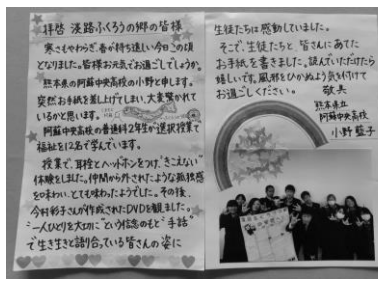 拝啓 淡路ふくろうの郷の皆様
寒さもやわらぎ、春が待ち遠しい今日この頃
となりました。皆様お元気でお過ごしでしょうか。
熊本県の阿蘇中央高校の小野と申します。
突然お手紙を差し上げてしまい、大変驚かれて
いるかと思います。
阿蘇中央高校の普通科2年生が選択授業で
福祉を12名で学んでいます。
授業で、耳栓とヘッドホンをつけ、“きこえない”
体験をしました。仲間から外されたような孤独感
を味わい、とても怖かったようでした。その後、
今村彩子さんが作成されたDVDを観ました。
“一人ひとりを大切に”という信念のもと“手話”
で生き生きと語り合っている皆さんの姿に
生徒たちは感動していました。
そこで、生徒たちと、皆さんにあてた
お手紙を書きました。読んでいただけたら
嬉しいです。風邪をひかぬよう気を付けて
お過ごしください。
敬具
熊本県立
阿蘇中央高校
小野 藍子